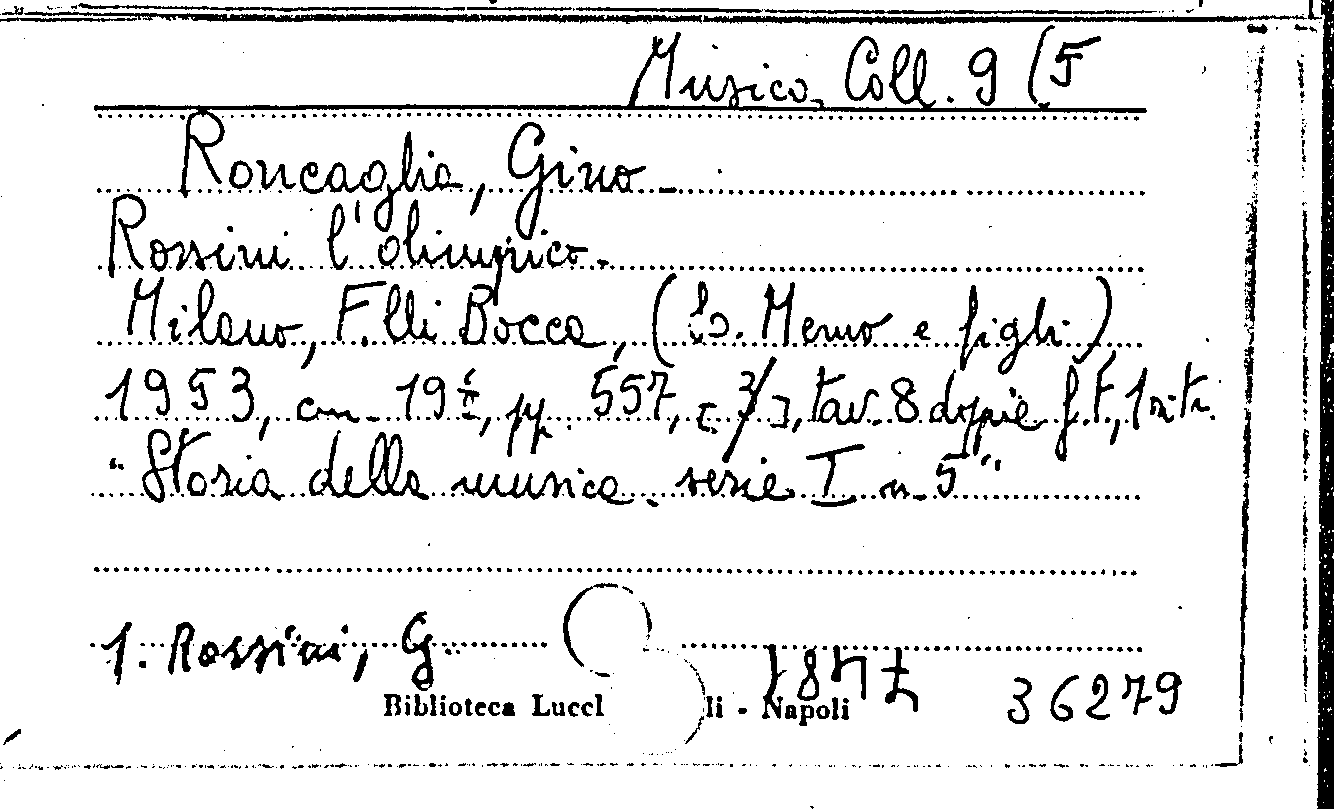 Musica, Coll. 9 (5
Roncaglia, Gino
Rossini l'olimpico.
Milano, F.lli Bocca, (Es. Memo e figli),
1953, cm. 19½, pp. 557, [3], tav. 8 doppie f.t., 1 ritr.
"Storia della musica. serie I n. 5"
1. Rossini, G.
Biblioteca Lucc li - Napoli 36279